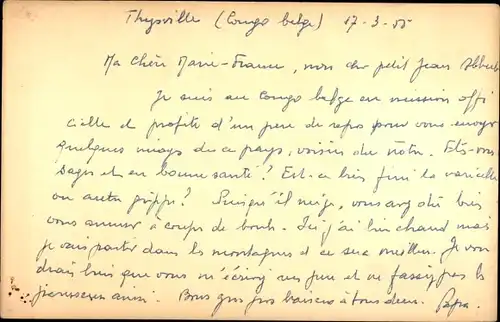 Thysville (Congo belge) 17-3-55
Ma chère Marie-France, mon cher petit Jean Albert
Je suis au Congo belge en mission offi
cielle et profite d'un peu de repos pour vous envoyer
quelques images de ce pays, voisin du nôtre. Etes-vous
sages et en bonne santé? Est-ce bien fini la varicelle
ou autre grippe? Puisqu'il neige, vous avez dû bien
vous amuser à coups de boule. Ici j'ai bien chaud mais
je vais partir dans les montagnes et ce sera meilleur. Je vou
drais bien que vous m'écriviez un peu et ne fassiez pas les
paresseux ainsi. Bons gros gros baisers à tous deux. Papa.